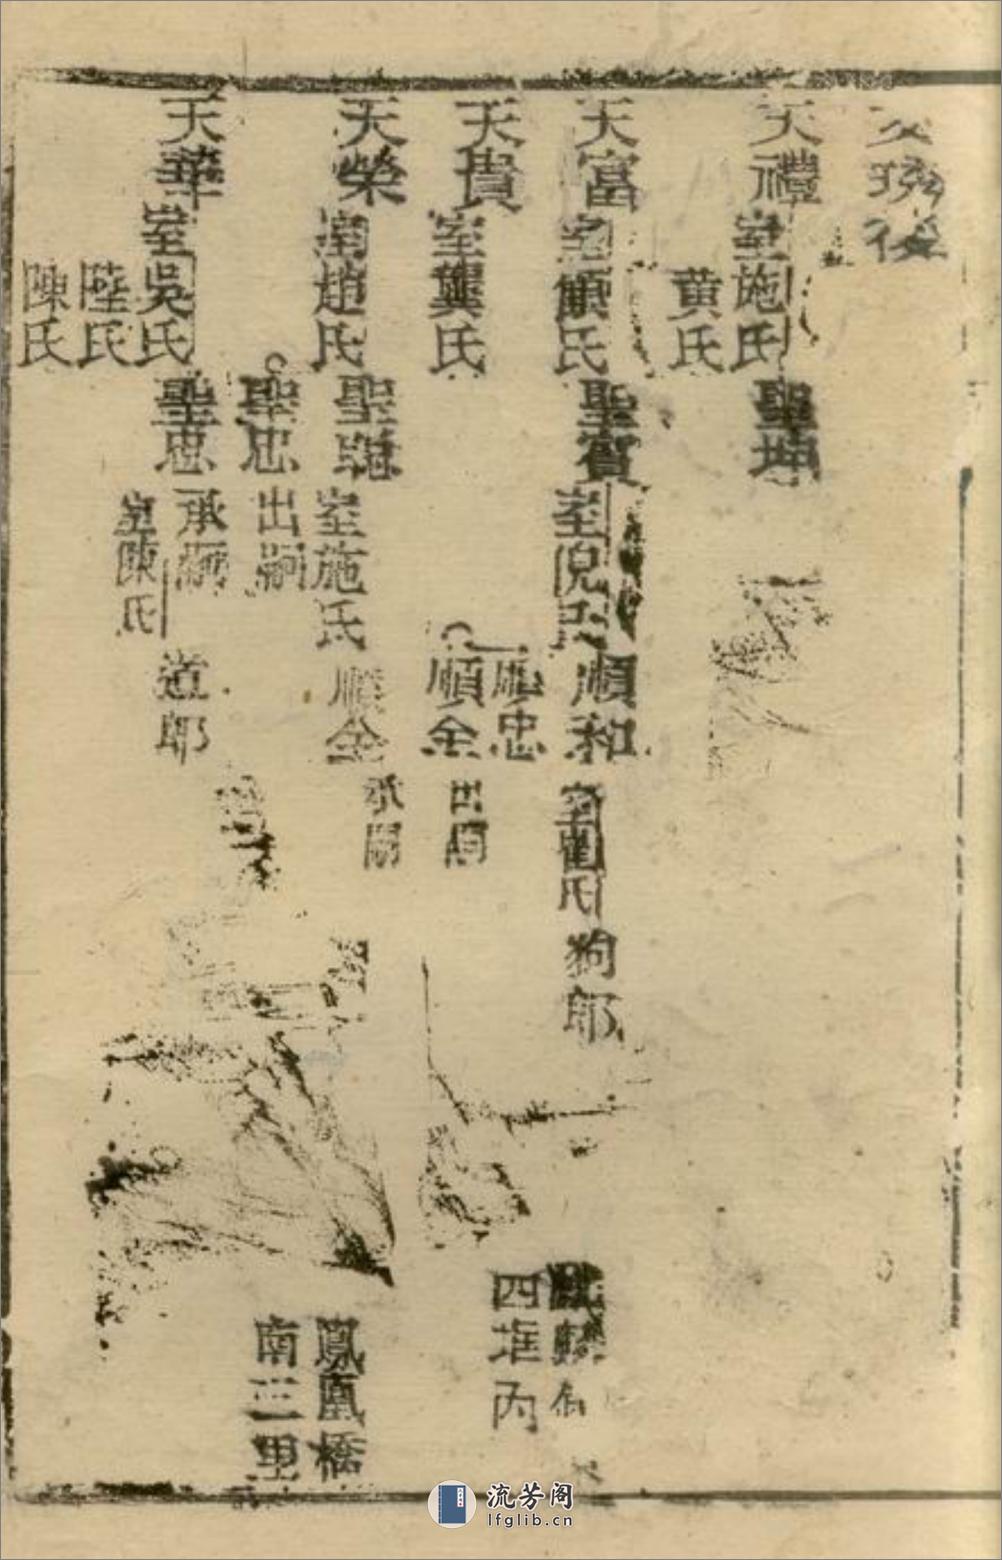 天禮
室施氏
黄氏
聖坤
天富
室顧氏
聖賓
室倪氏
順和
室崔氏
狗郎
順忠
順全
出嗣
四堆內
天貴
室龔氏
天榮
室趙氏
聖瑞
室施氏
順全
承嗣
聖忠
出嗣
鳳凰橋
南三里
天華
室吳氏
陸氏
陳氏
聖忠
承嗣
室陳氏
道郎
流芳阁
lfglib.cn